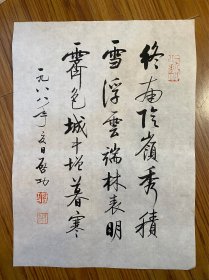 终南阴岭秀積
雪浮雲端林表明
霽色城中增暮寒
一九八八年夏日啟功